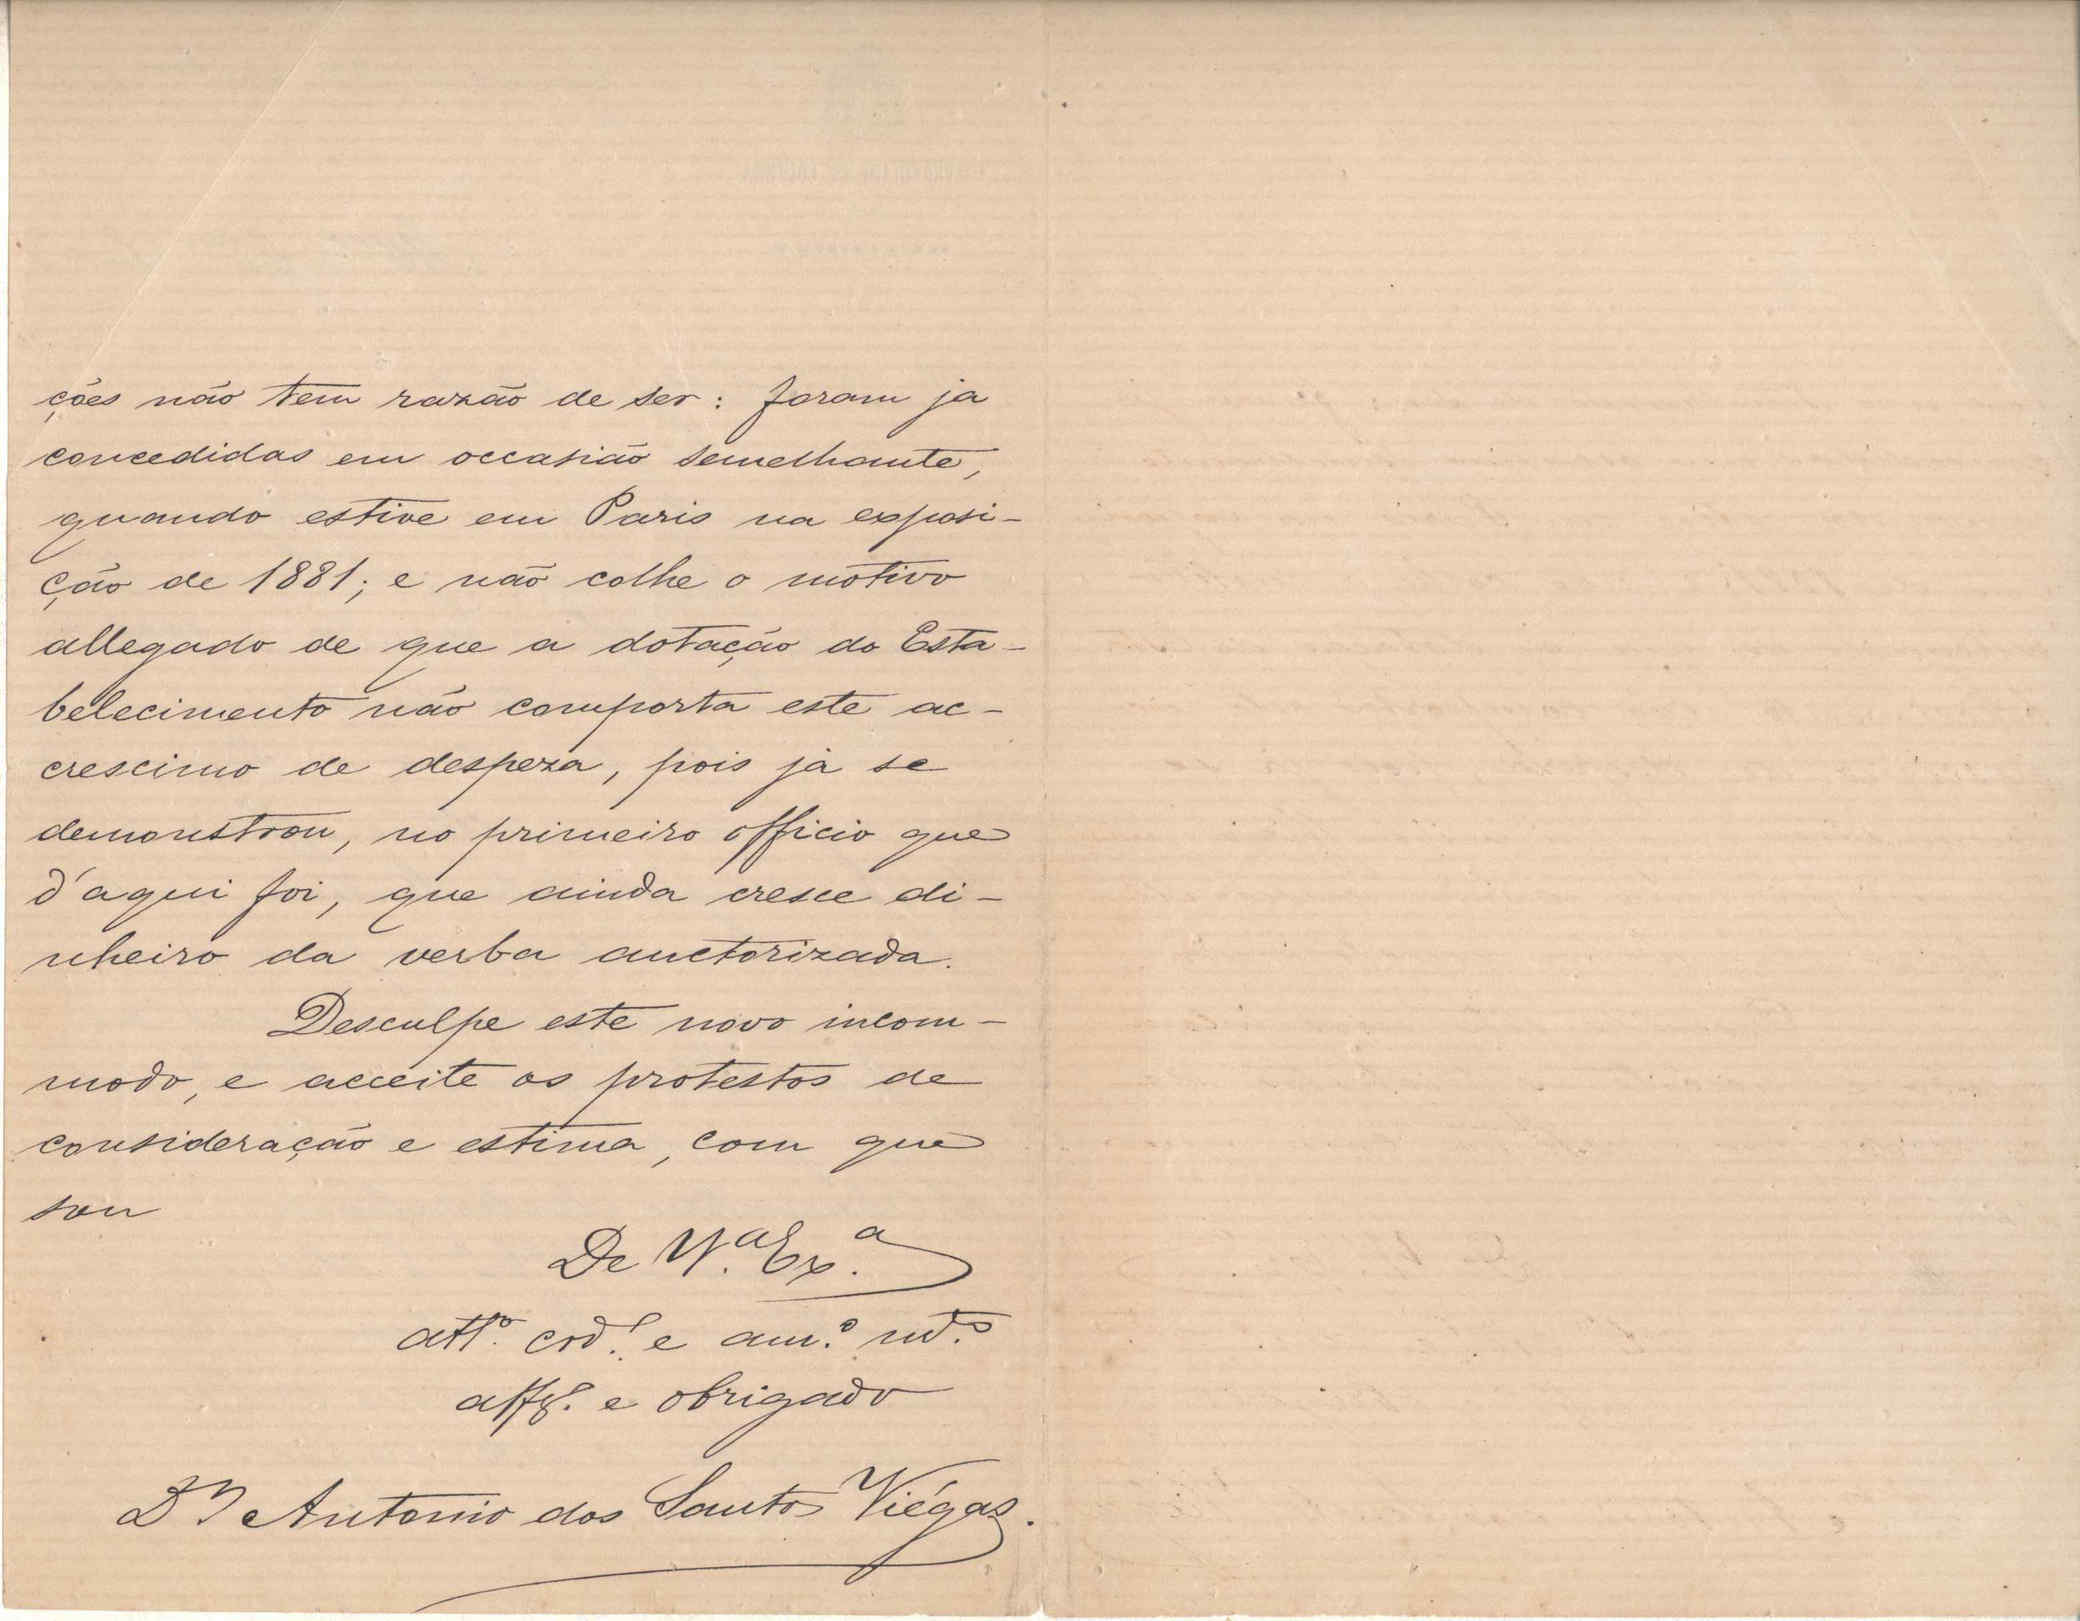 ções não tem razão de ser: foram ja
concedidas em occasião semelhante,
quando estive em Paris na exposi-
ção de 1881; e não colhe o motivo
allegado de que a dotação do Esta-
belecimento não comporta este ac-
crescimo de despeza, pois já se
demonstrou, no primeiro officio que
d'aqui foi, que ainda cresce di-
nheiro da verba auctorizada.
Desculpe este novo incom-
modo, e acceite os protestos de
consideração e estima, com que
sou
De V.ª Ex.ª
att.º crd.º e am.º mt.º
e obrigado
Dr Antonio dos Santos Viégas.